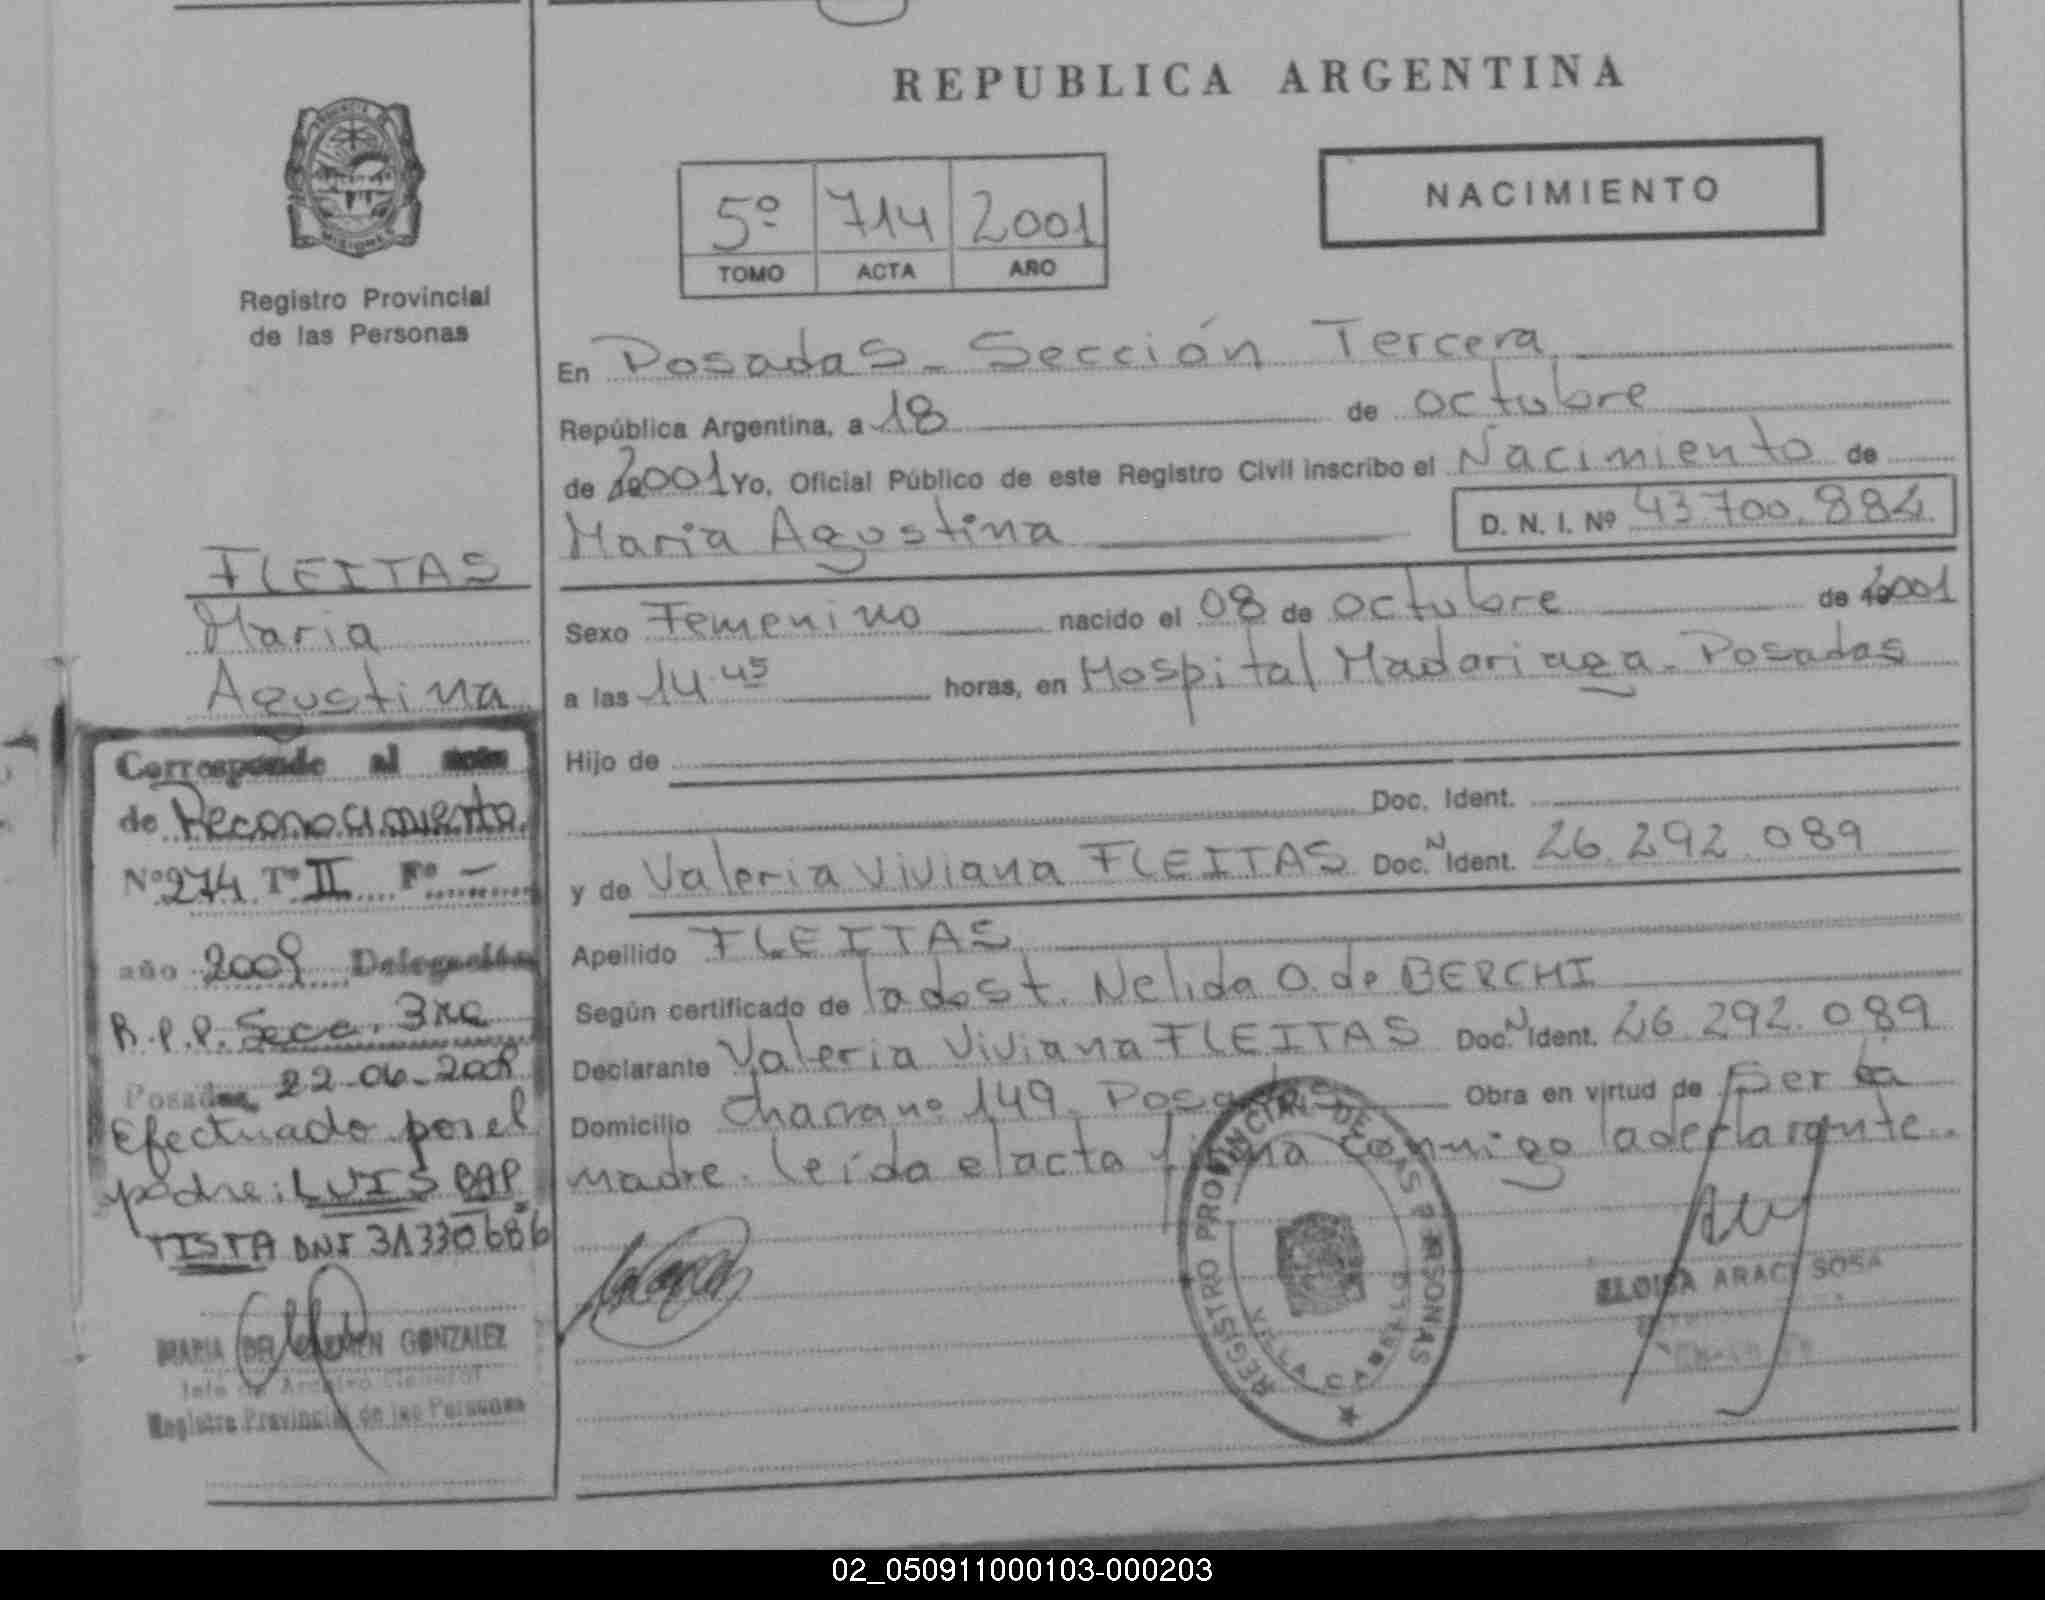 REPUBLICA ARGENTINA
PROVINCIA DE MISIONES
Registro Provincial
de las Personas
5º 714 2001
TOMO ACTA AÑO
NACIMIENTO
En Posadas - Sección Tercera
República Argentina, a 18 de octubre
de 2001 Yo, Oficial Público de este Registro Civil inscribo el Nacimiento de
Maria Agustina D. N. I. Nº 43.700.884
Sexo Femenino nacido el 08 de octubre de 2001
a las 14.45 horas, en Hospital Madariaga - Posadas
Hijo de
Doc. Ident.
y de Valeria Viviana FLEITAS Doc. N Ident. 26.292.089
Apellido FLEITAS
Según certificado de la obst. Nelida O. de BERCHI
Declarante Valeria Viviana FLEITAS Doc. N Ident. 26.292.089
Domicilio Chacra nº 149. Posadas Obra en virtud de Ser la
madre. leída el acta firma conmigo la declarante.
FLEITAS
Maria
Agustina
Corresponde al
de Reconocimiento
Nº 274 Tº II Fº -
año 2009 Delegación
R.P.P. Secc. 3ra
Posadas,
Efectuado por el
padre: LUIS BAP
TISTA DNI 31330686
MARIA DEL CARMEN GONZALEZ
Jefe de Archivo General
Registro Provincial de las Personas
REGISTRO PROVINCIAL DE LAS PERSONAS
VILLA CABELLO
ELOISA ARACI SOSA
02_050911000103-000203